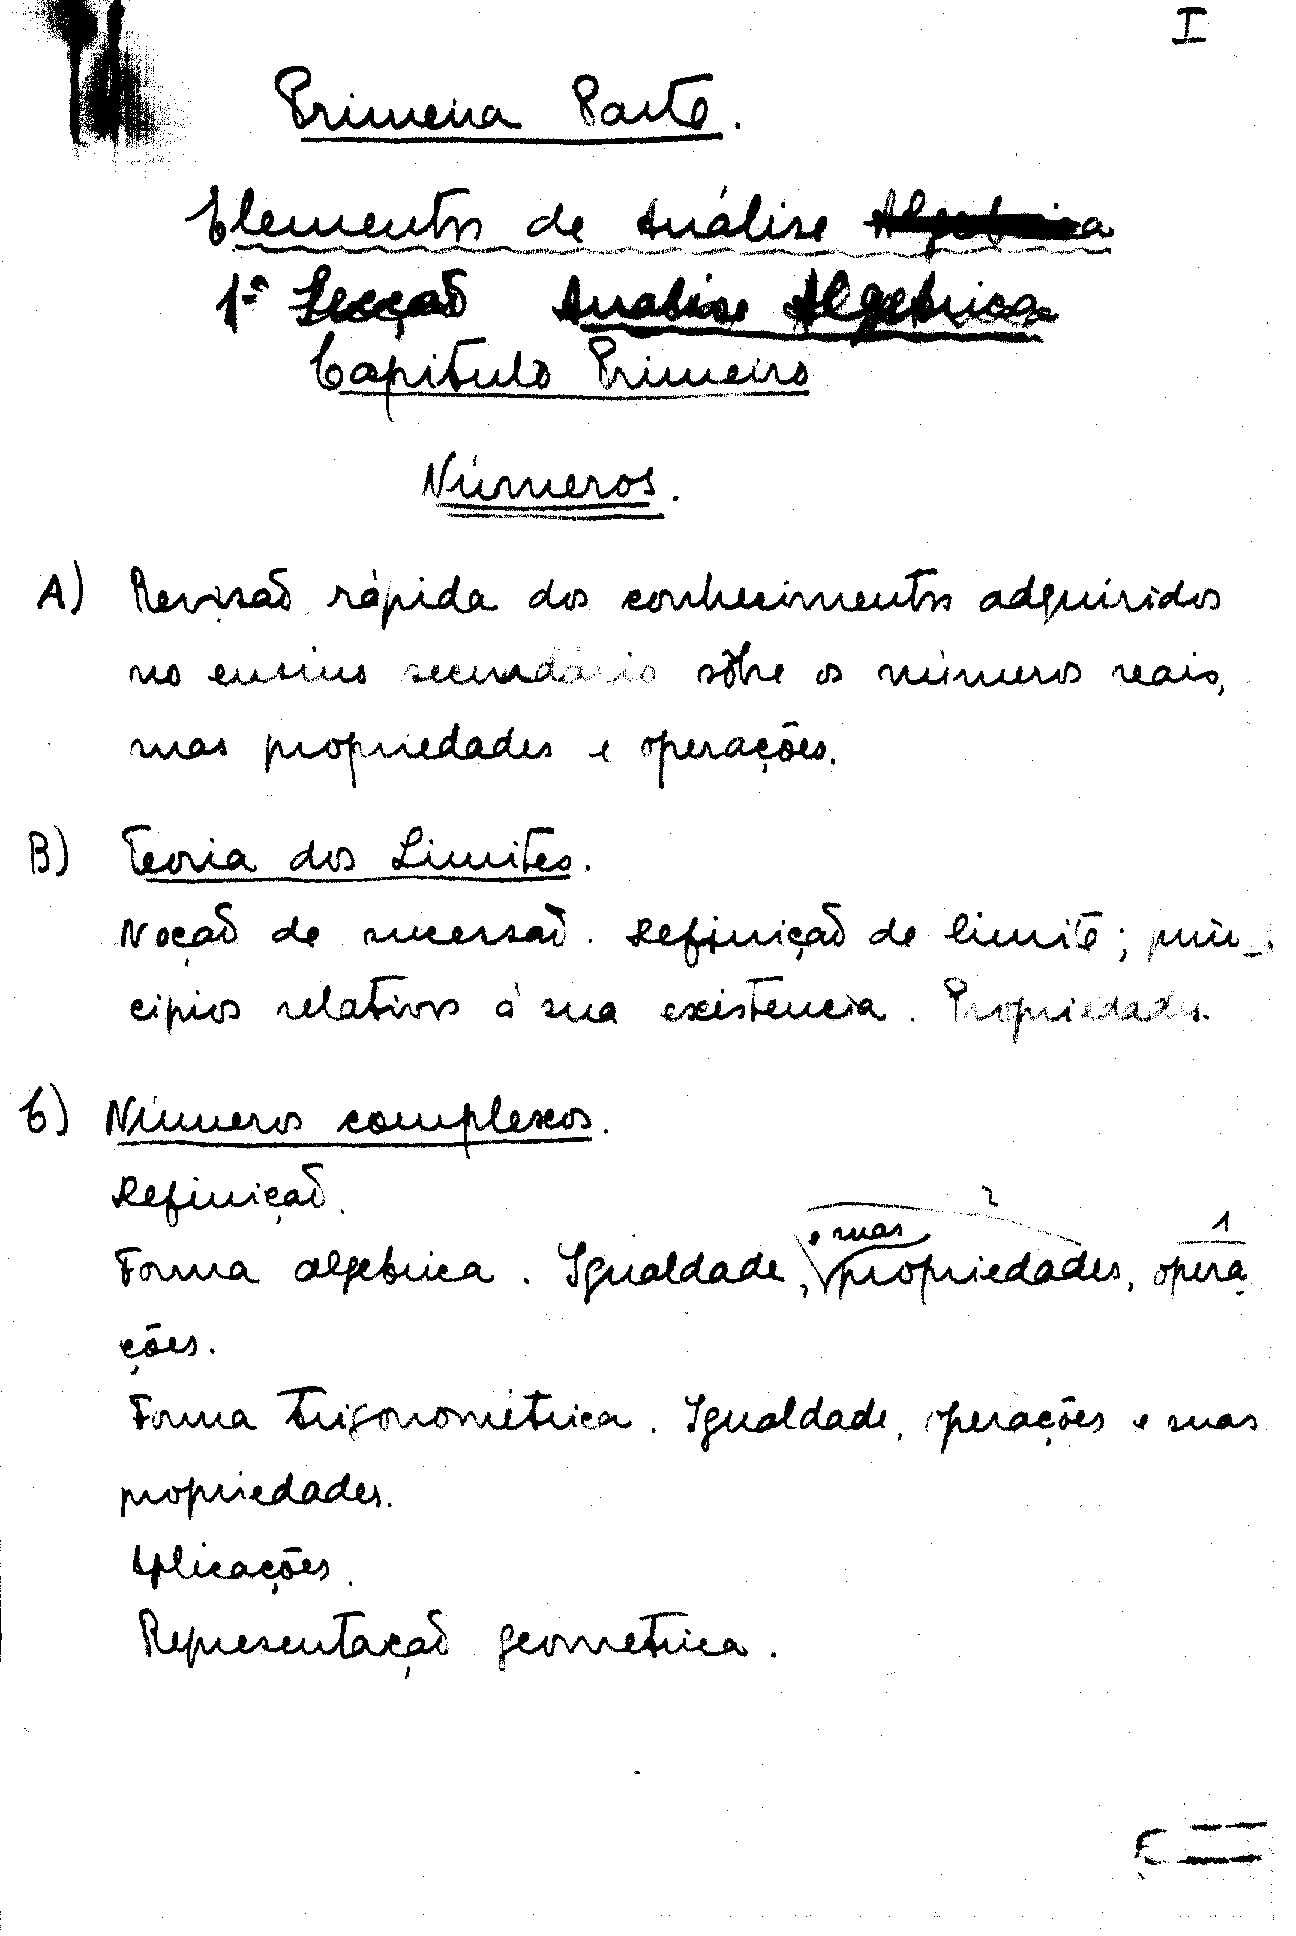 I
Primeira Parte.
Elementos de Análise Algebrica
1ª Secção Análise Algebrica
Capitulo Primeiro
Números.
A) Revisão rápida dos conhecimentos adquiridos
no ensino secundário sôbre os números reais,
suas propriedades e operações.
B) Teoria dos Limites.
Noção de sucessão. Definição de limite; prin-
cipios relativos á sua existencia. Propriedades.
C) Números complexos.
Definição.
2
e suas 1
Forma algebrica. Igualdade, propriedades, opera-
ções.
Forma trigonométrica. Igualdade, operações e suas
propriedades.
Aplicações.
Representação geometrica.